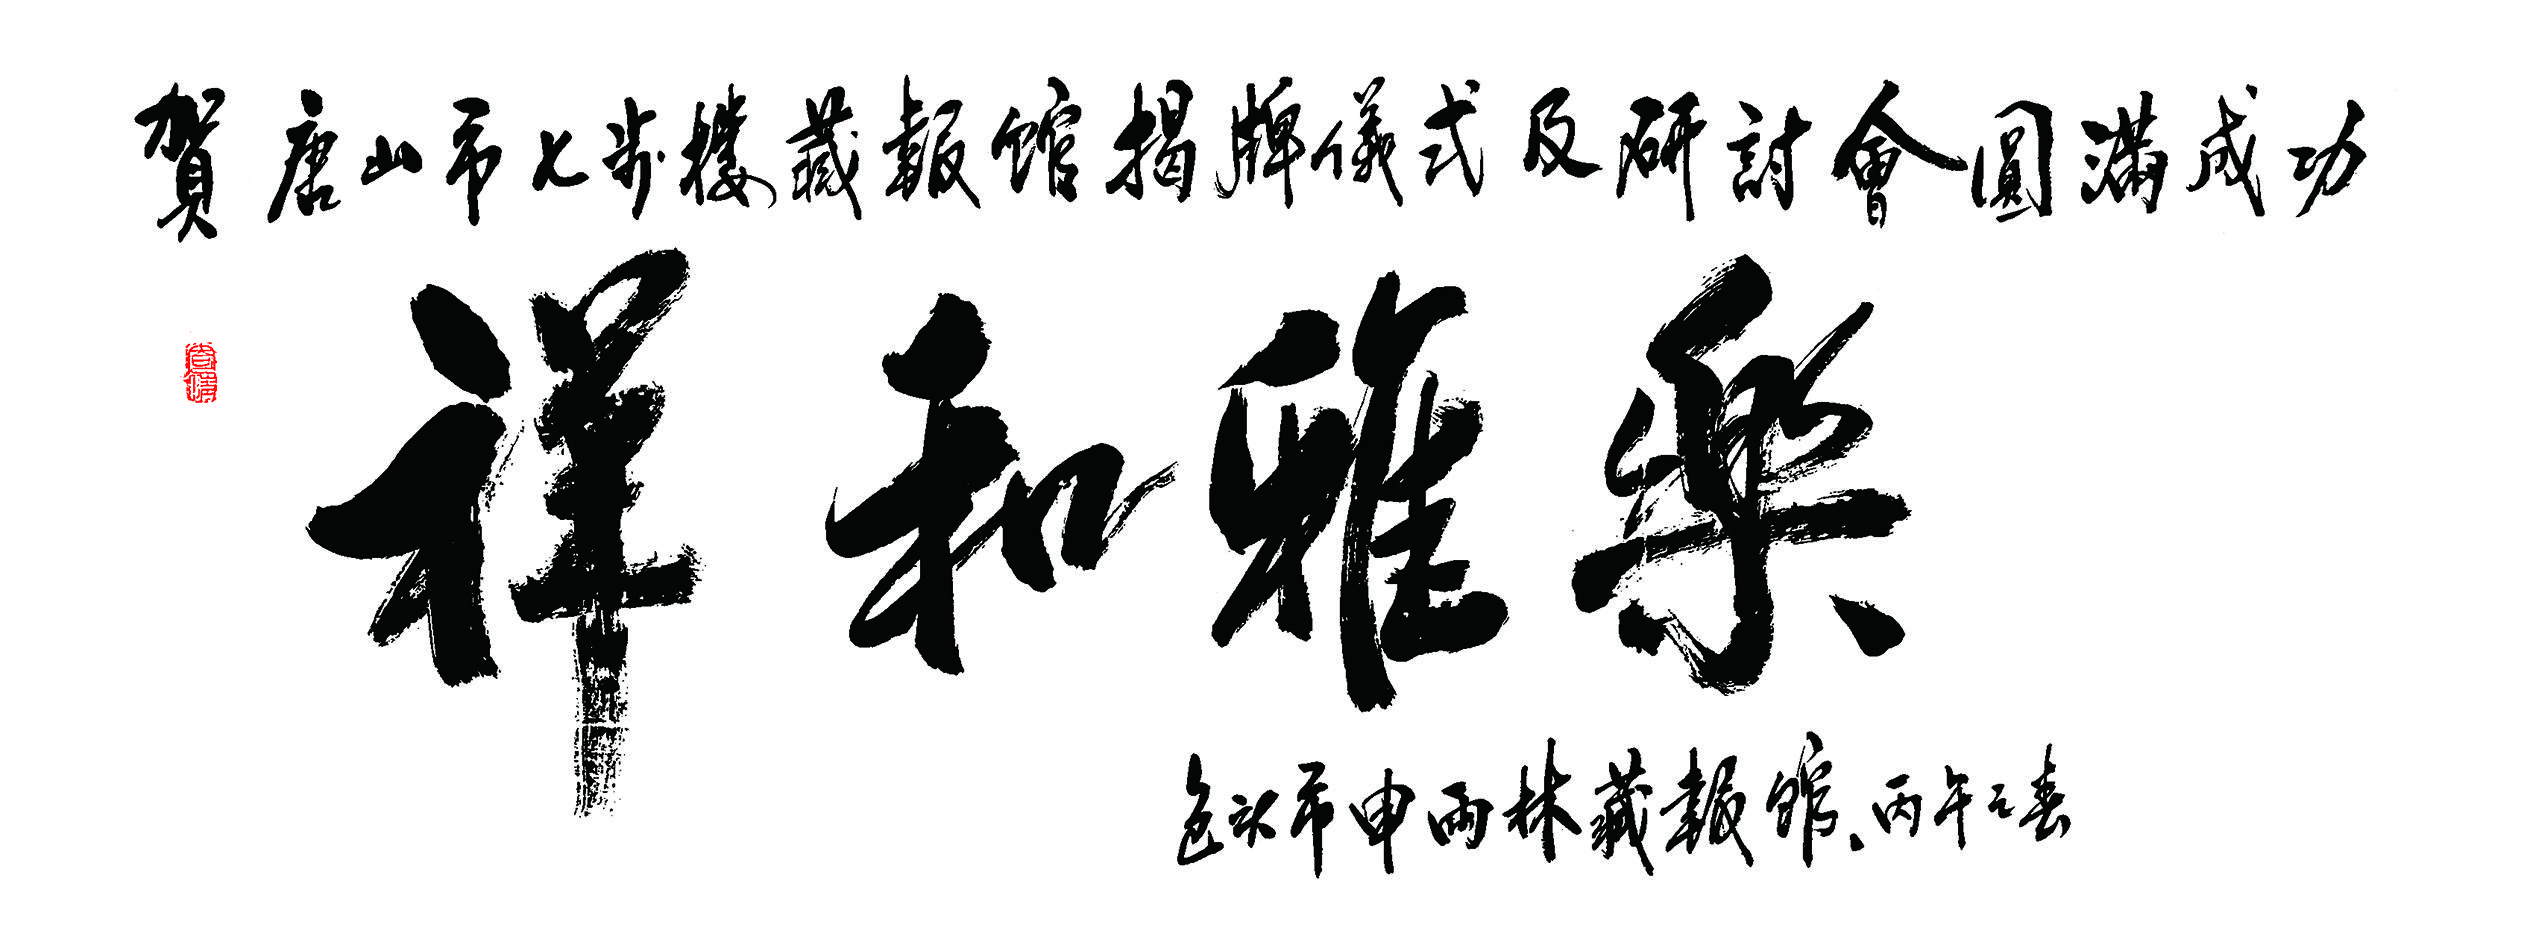 賀唐山市七步楼藏報馆揭牌儀式及研討會圓满成功
祥和雅樂
包头市申雨林藏報馆、丙午之春